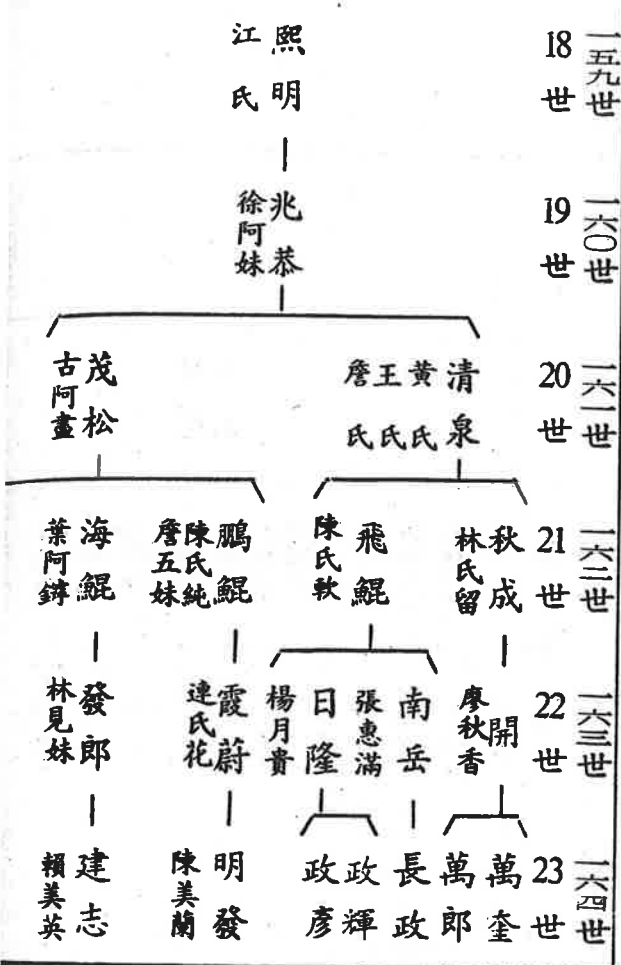 一五九世
18世
熙明
江氏
一六〇世
19世
兆恭
徐阿妹
一六一世
20世
清泉
黄氏
王氏
詹氏
茂松
古阿畫
一六二世
21世
秋成
林氏留
飛鯤
陳氏軟
鵬鯤
陳氏純
詹五妹
海鯤
葉阿
一六三世
22世
開
廖秋香
南岳
張惠滿
日隆
楊月貴
霞蔚
連氏花
發郎
林見妹
一六四世
23世
萬奎
萬郎
長政
政輝
政彥
明發
陳美蘭
建志
賴美英